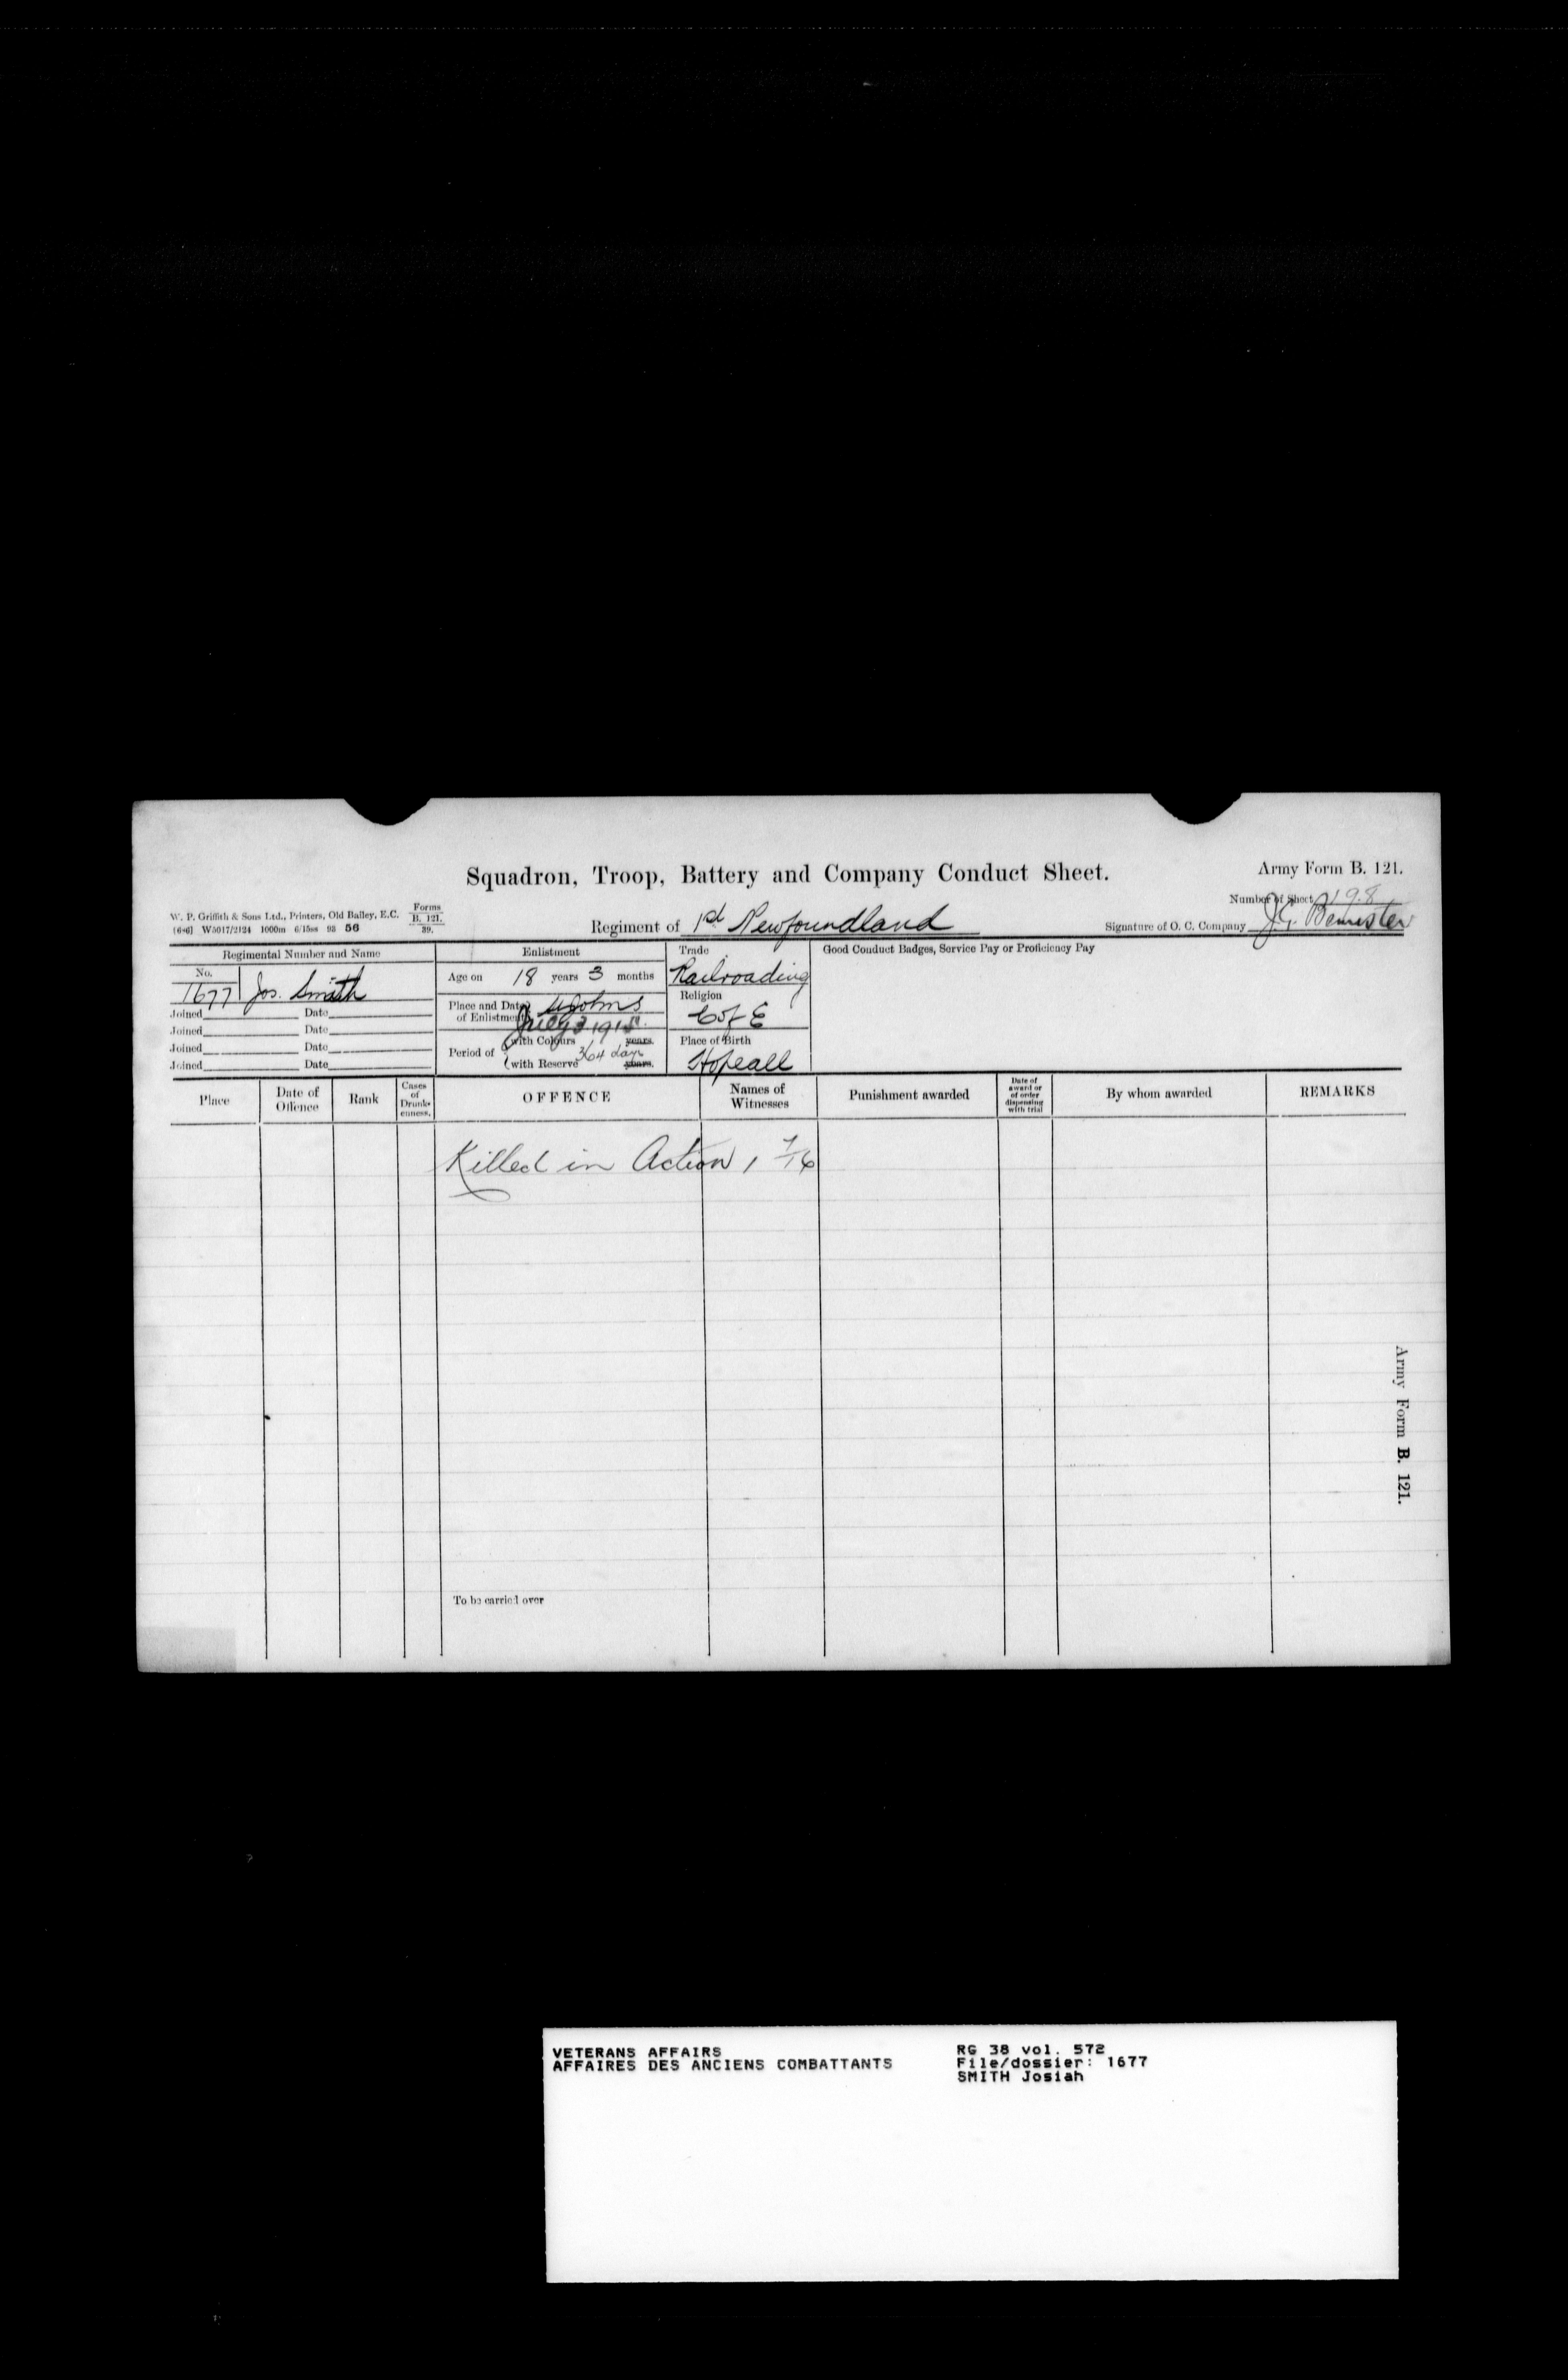 Squadron, Troop, Battery and Company Conduct Sheet.
Army Form B. 121.
Number of Sheet 198
W. P. Griffith & Sons Ltd., Printers, Old Bailey, E.C.
Forms
B. 121.
39.
[6•6] W5017/2124 1000m 6/15ss 93 56
Regiment of 1st Newfoundland
Signature of O. C. Company J.C. Bemister
Regimental Number and Name
No.
1677 Jos. Smith
Joined Date
Joined Date
Joined Date
Joined Date
Enlistment
Age on 18 years 3 months
Place and Date of Enlistment St Johns
July 3 1915
Period of
with Colours years.
with Reserve 364 days years.
Trade
Railroading
Religion
C of E
Place of Birth
Hopeall
Good Conduct Badges, Service Pay or Proficiency Pay
Place
Date of Offence
Rank
Cases of Drunk-enness.
OFFENCE
Names of Witnesses
Punishment awarded
Date of award or of order dispensing with trial
By whom awarded
REMARKS
Killed in Action 1 7/16
To be carried over
Army Form B. 121.
VETERANS AFFAIRS
AFFAIRES DES ANCIENS COMBATTANTS
RG 38 vol. 572
File/dossier: 1677
SMITH Josiah